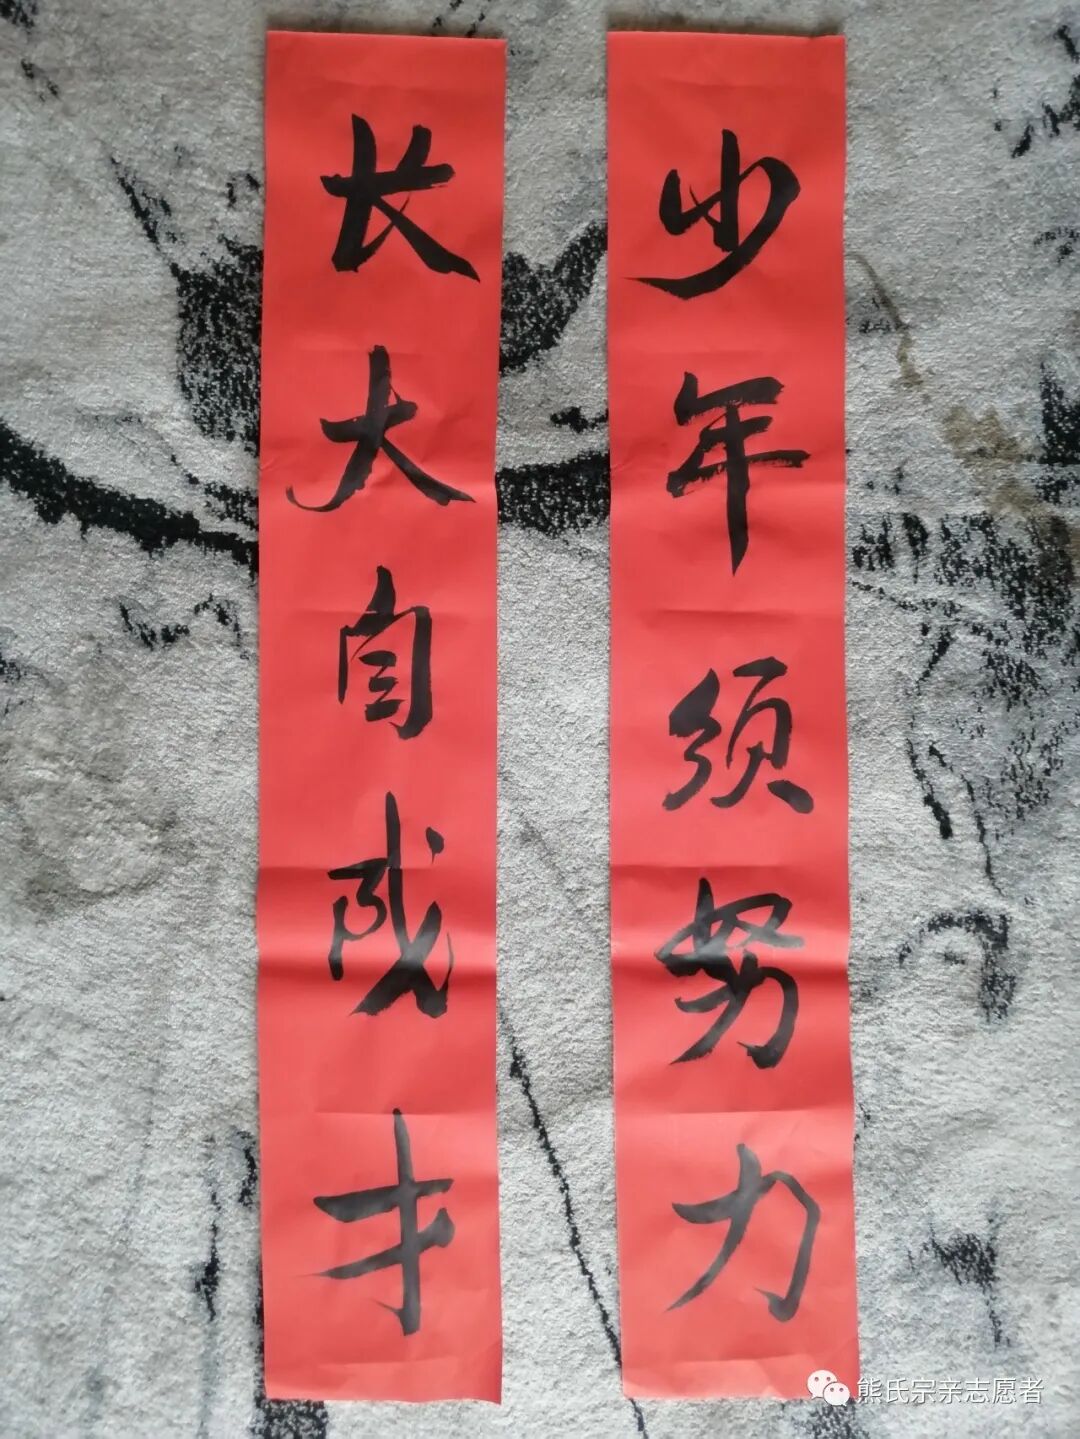 少年须努力
长大自成才
熊氏宗亲志愿者